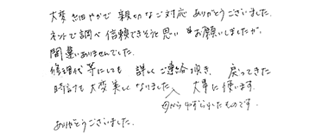 大変 細やかで 親切なご対応 ありがとうございました。
ネットで調べ 信頼できそうと思い お願いしましたが、
間違いありませんでした。
修理代 等にしても 詳しくご連絡頂き、 戻ってきた
時計も 大変美しくなりました 大事に使います。
母からゆずらったものです。
ありがとうございました。